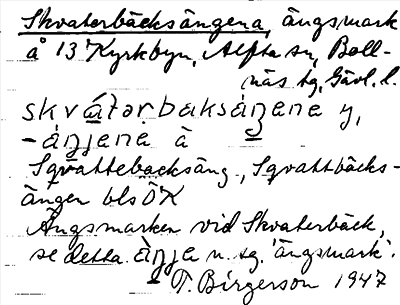 Skvaterbäcksängena, ängsmark
å 13 Kyrkbyn, Alfta sn, Boll-
näs tg, Gävl. l.
skvátərbaksáŋena y,
-áŋjena ä
Sqvattebacksäng., Sqvattbäcks-
ängen bls ÖK
Ängsmarken vid Skvaterbäck,
se detta. àŋja n. sg. 'ängsmark'.
T. Birgerson 1947